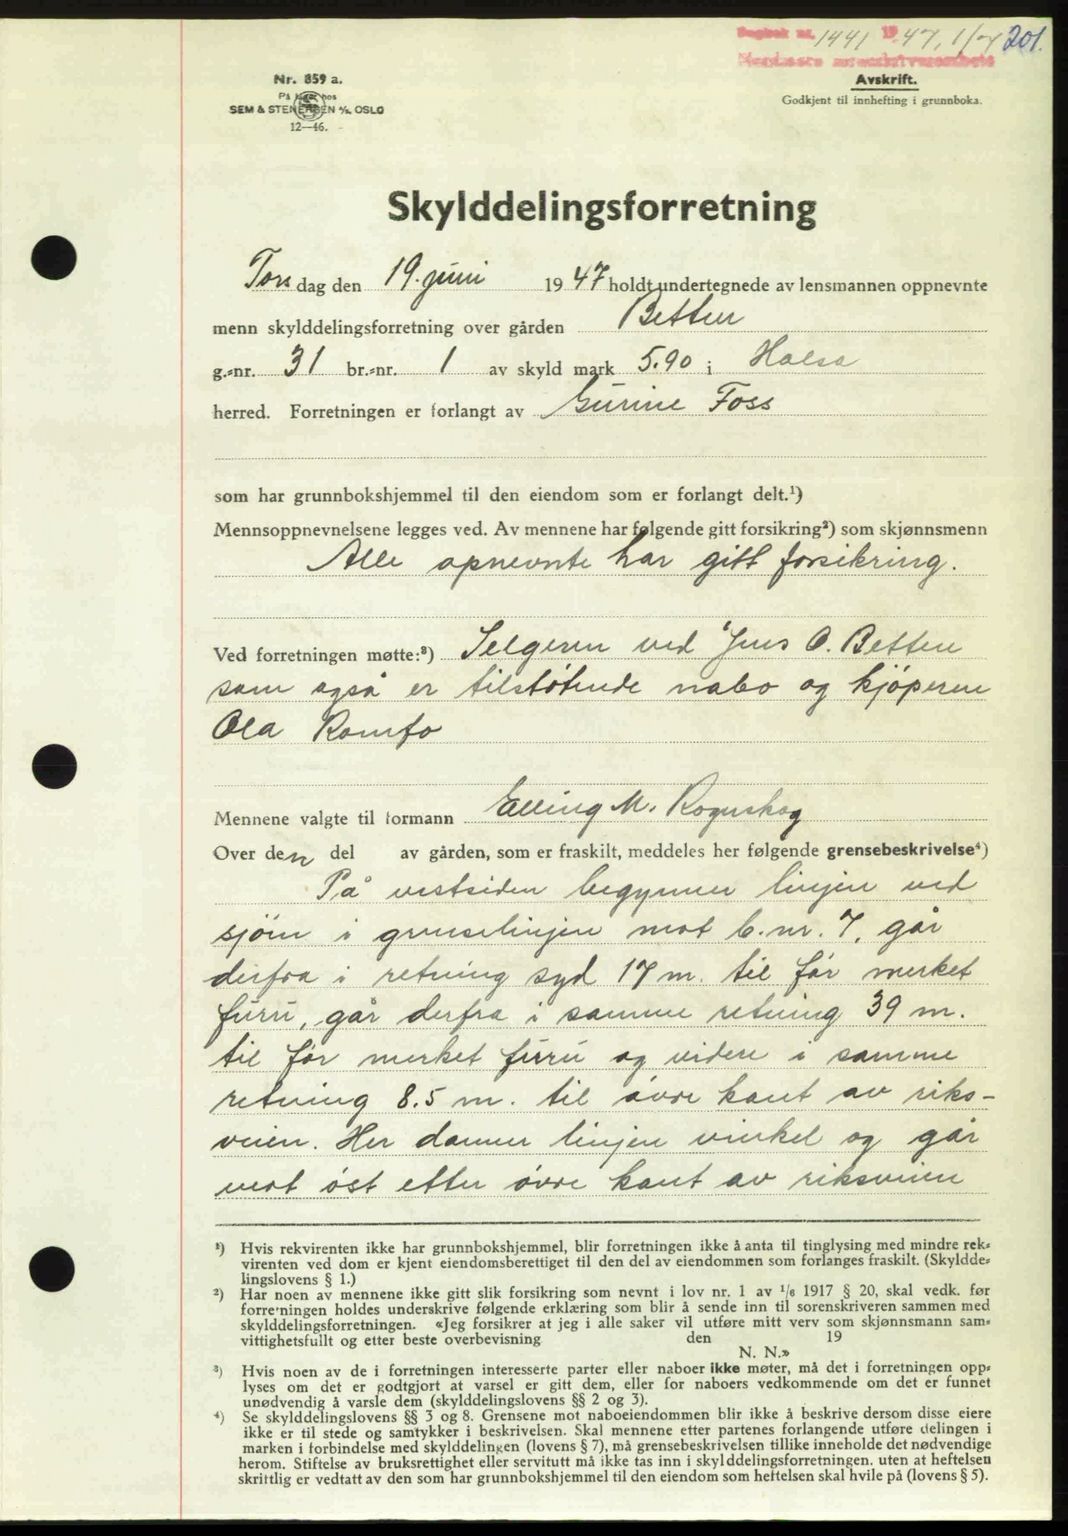 Dagbok nr. 1441 1947, 1/7 201.
Nordmøre sorenskriverembete
Nr. 859 a.
På lager hos
SEM & STENERSEN A/S, OSLO
12—46.
Avskrift.
Godkjent til innhefting i grunnboka.
Skylddelingsforretning
Torsdag den 19. juni 1947 holdt undertegnede av lensmannen oppnevnte
menn skylddelingsforretning over gården Betten
g.-nr. 31 br.-nr. 1 av skyld mark 5.90 i Halsa
herred. Forretningen er forlangt av Gurine Foss
som har grunnbokshjemmel til den eiendom som er forlangt delt.¹)
Mennsoppnevnelsene legges ved. Av mennene har følgende gitt forsikring²) som skjønnsmenn
Alle opnevnte har gitt forsikring.
Ved forretningen møtte:³) Selgeren ved Jens O. Betten
som også er tilstøtende nabo og kjøperen
Ola Romfo
Mennene valgte til formann Elling M. Rognskog
Over den del av gården, som er fraskilt, meddeles her følgende grensebeskrivelse⁴)
På vestsiden begynner linjen ved
sjøen i grenselinjen mot b.nr. 7, går
derfra i retning syd 17 m. til før merket
furu, går derfra i samme retning 39 m.
til før merket furu og videre i samme
retning 8.5 m. til øvre kant av riks-
veien. Her danner linjen vinkel og går
vert øst etter øvre kant av riksveien
¹) Hvis rekvirenten ikke har grunnbokshjemmel, blir forretningen ikke å anta til tinglysing med mindre rek-
virenten ved dom er kjent eiendomsberettiget til den del av eiendommen som forlanges fraskilt. (Skyldde-
lingslovens § 1.)
²) Har noen av mennene ikke gitt slik forsikring som nevnt i lov nr. 1 av 1/6 1917 § 20, skal vedk. før
forretningen holdes underskrive følgende erklæring som blir å sende inn til sorenskriveren sammen med
skylddelingsforretningen. «Jeg forsikrer at jeg i alle saker vil utføre mitt verv som skjønnsmann sam-
vittighetsfullt og etter beste overbevisning den 19
N. N.»
³) Hvis noen av de i forretningen interesserte parter eller naboer ikke møter, må det i forretningen opp-
lyses om det er godtgjort at varsel er gitt dem, eller for naboers vedkommende om det er funnet
unødvendig å varsle dem (skylddelingslovens §§ 2 og 3).
⁴) Se skylddelingslovens §§ 3 og 8. Grensene mot naboeiendommen blir ikke å beskrive dersom disse eiere
ikke er til stede og samtykker i beskrivelsen. Skal mennene etter partenes forlangende utføre delingen i
marken i forbindelse med skylddelingen (lovens § 7), må grensebeskrivelsen tillike inneholde det nødvendige
herom. Stiftelse av bruksrettighet eller servitutt må ikke tas inn i skylddelingsforretningen, uten at heftelsen
skriftlig er vedtatt av den som har grunnbokshjemmel til den eiendom som heftelsen skal hvile på (lovens § 5).